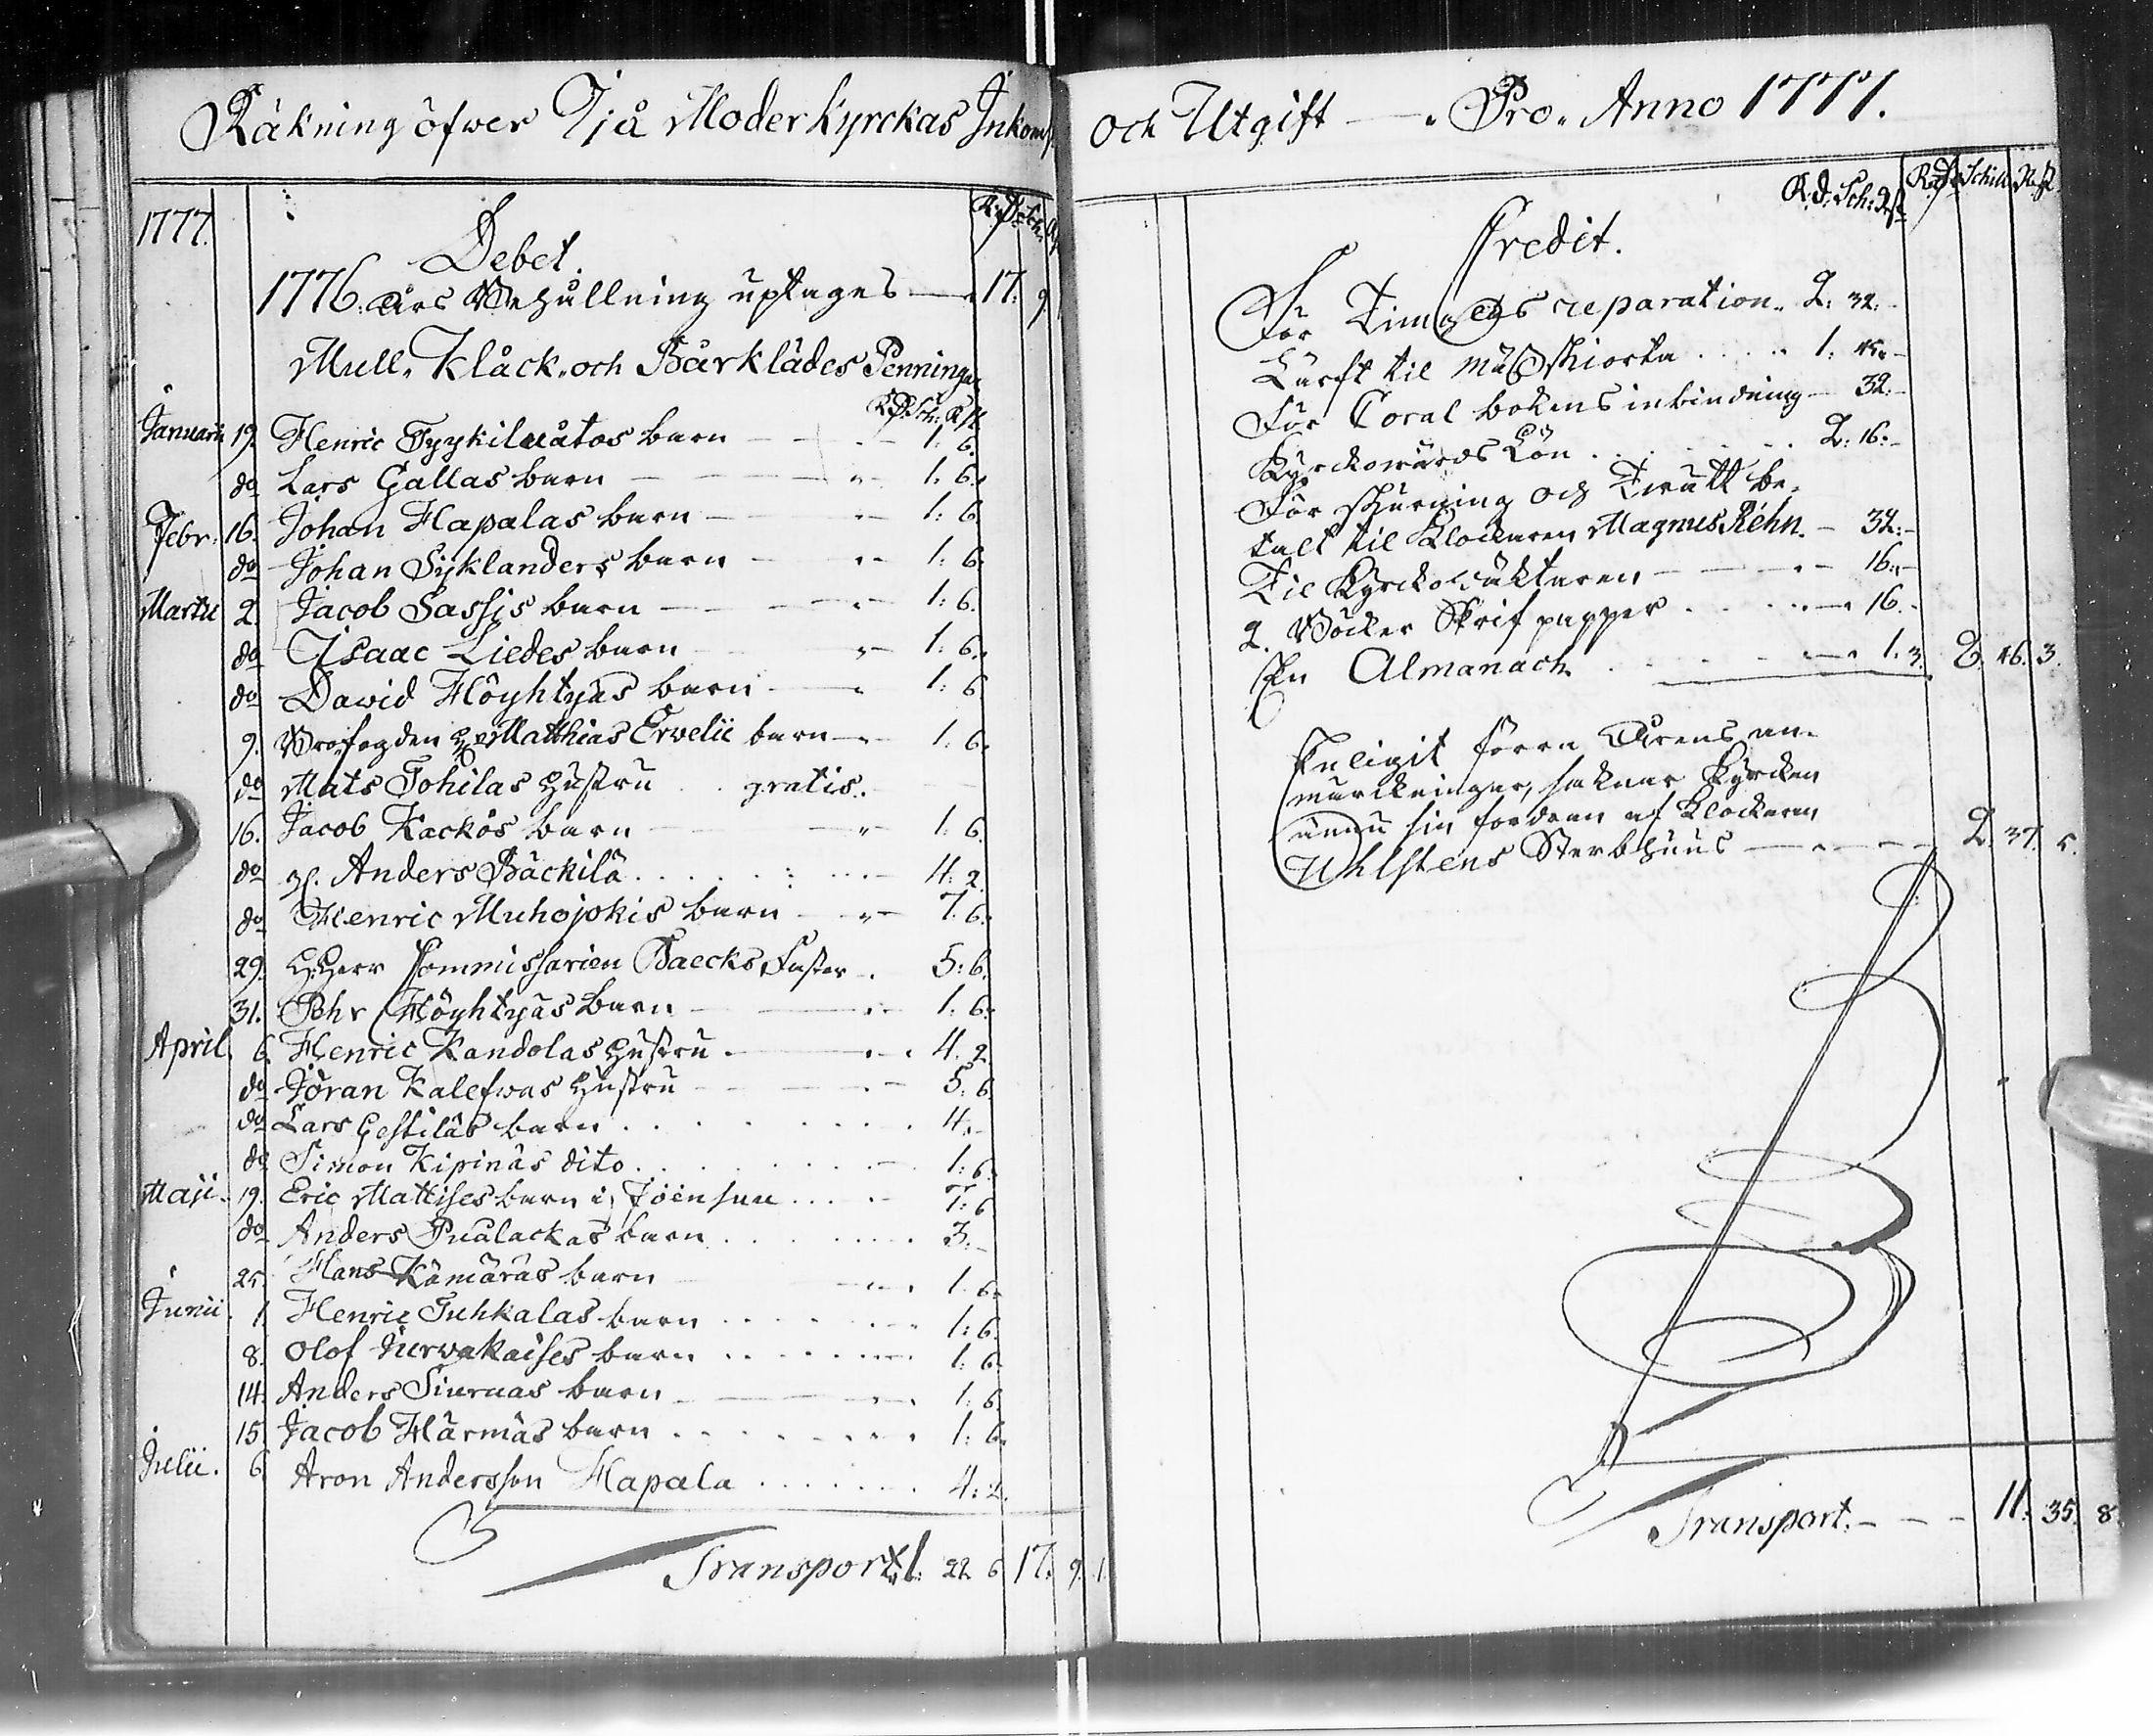 Räkning öfwer Ijå Moder Kyrckas Inkomst
1777.
Debet. R:dr Sch: Rst
1776. års Behållning uptages — 17. 9.
Mull- Klåck- och Bårklädes Penningar
Rdr Sch: Rst
Januarii 19. Henric Tyykiluåtos barn — 1: 6.
do Lars Gallas barn — 1: 6.
Febr: 16. Johan Hapalas barn — 1: 6.
do Johan Syklanders barn — 1: 6.
Martii 2. Jacob Sassis barn — 1: 6.
do Isaac Liedes barn — 1: 6.
do Dawid Höyhtyäs barn — 1: 6
9. Brofogden Hr Matthias Ervelii barn — 1: 6.
do Mats Tohilas hustru . . gratis.
16. Jacob Kackos barn — 1: 6.
do gl. Anders Bäckilä . . . . 4: 2.
do Henric Muhojokis barn — 7. 6.
29. H:Herr Commissarien Baecks Faster . 5: 6.
31. Pehr Höyhtyäs barn — 1: 6.
April. 6. Henric Kandolas hustru — 4. 2.
do Jöran Kalefwas hustru — 5: 6.
do Lars Gestiläs barn . . . . 4. -
do Simon Kipinäs dito . . . . 1: 6.
Maji. 19. Eric Mattises barn i Jöensuu . . . 7: 6
do Anders Pualackas barn . . . . 3. -
25. Hans Kämäräs barn . . . 1. 6.
Junii. 1. Henric Tuhkalas barn . . . . 1: 6.
8. Olof Kurwakaises barn . . . . 1: 6.
14. Anders Siuruas barn — 1: 6.
15. Jacob Härmäs barn . . . . 1: 6.
Julii. 6. Aron Andersson Hapala . . . . 4: 2.
Transport 1: 22. 6 17. 9. 1.
och Utgift — Pro. Anno 1777.
R:d: Sch: Rst R:dr Schill. Rst.
Credit.
För Timglas reparation. 2: 32: -
Lärft til Mässkiorta . . . . 1: 45. -
För Coral bokens inbindning — 32: -
Kyrckowärds Lön . . . . 2: 16: -
För skurning och Twätt be-
talt til Klockaren Magnus Rehn. — 32: -
Til Kyrckowäktaren — 16: -
2. Böcker Skrif papper . . . . 16. -
En Almanach . . . . 1. 3. 8. 46. 3.
Enligit förra Årens an-
märckningar, saknar Kyrckan
ännu sin fordran af Klockaren
Uhlstens Sterbhuus — 2. 37. 5.
Transport. — 11. 35. 8.